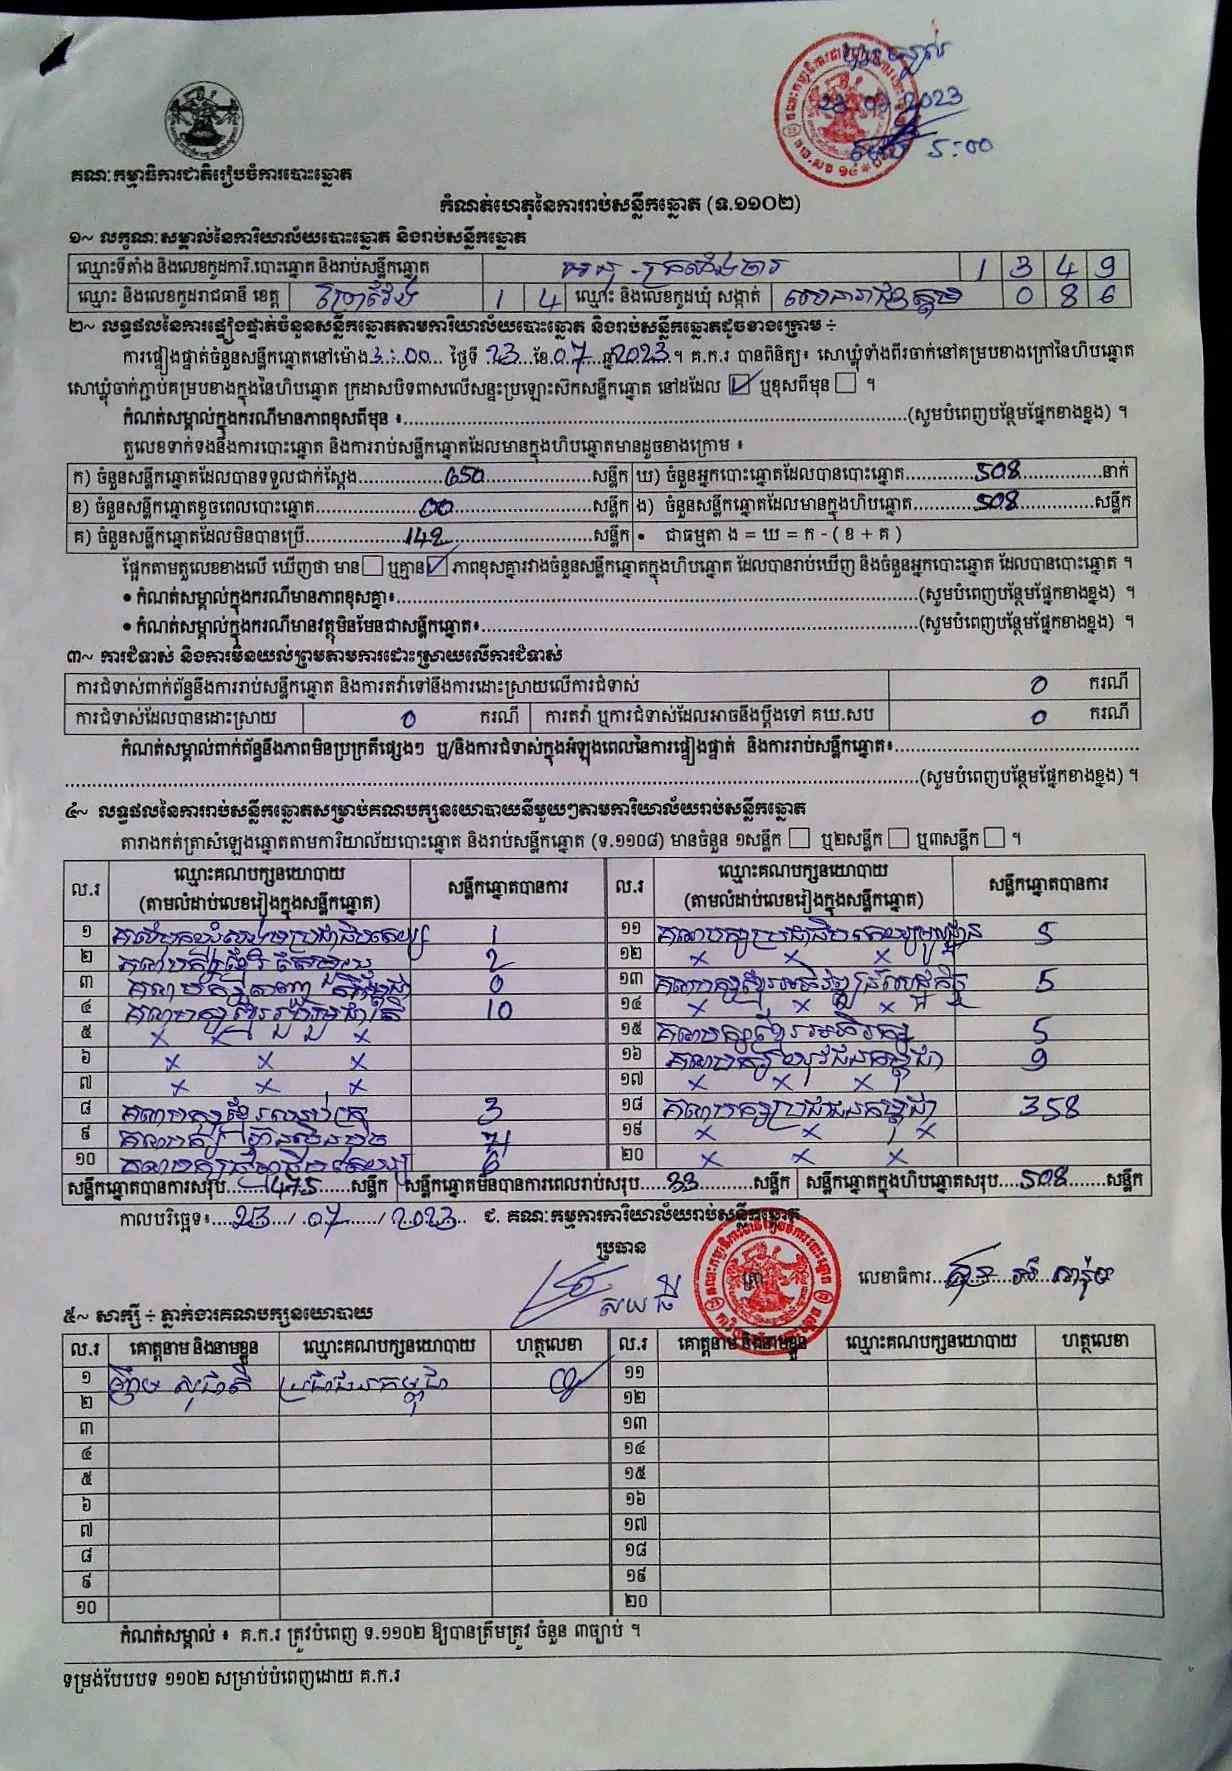 23.07.2023
5:00
គណៈកម្មាធិការជាតិរៀបចំការបោះឆ្នោត
កំណត់ហេតុនៃការរាប់សន្លឹកឆ្នោត (ទ.១១០២)
១~ លក្ខណៈសម្គាល់នៃការិយាល័យបោះឆ្នោត និងរាប់សន្លឹកឆ្នោត
ឈ្មោះទីតាំង និងលេខកូដការិ.បោះឆ្នោត និងរាប់សន្លឹកឆ្នោត 1 3 4 9
ឈ្មោះ និងលេខកូដរាជធានី ខេត្ត ព្រៃវែង 1 4 ឈ្មោះ និងលេខកូដឃុំ សង្កាត់ 0 8 6
២~ លទ្ធផលនៃការផ្ទៀងផ្ទាត់ចំនួនសន្លឹកឆ្នោតតាមការិយាល័យបោះឆ្នោត និងរាប់សន្លឹកឆ្នោតដូចខាងក្រោម ÷
ការផ្ទៀងផ្ទាត់ចំនួនសន្លឹកឆ្នោតនៅម៉ោង 3:00 ថ្ងៃទី 23 ខែ 07 ឆ្នាំ 2023 ។ គ.ក.រ បានពិនិត្យ៖ សោឃ្លុំទាំងពីរចាក់នៅគម្របខាងក្រៅនៃហិបឆ្នោត
សោឃ្លុំចាក់ភ្ជាប់គម្របខាងក្នុងនៃហិបឆ្នោត ក្រដាសបិទពាសលើសន្ទះប្រឡោះស៊កសន្លឹកឆ្នោត នៅដដែល ☑ ឬខុសពីមុន ☐ ។
កំណត់សម្គាល់ក្នុងករណីមានភាពខុសពីមុន ៖ (សូមបំពេញបន្ថែមផ្នែកខាងខ្នង) ។
តួលេខទាក់ទងនឹងការបោះឆ្នោត និងការរាប់សន្លឹកឆ្នោតដែលមានក្នុងហិបឆ្នោតមានដូចខាងក្រោម ៖
ក) ចំនួនសន្លឹកឆ្នោតដែលបានទទួលជាក់ស្តែង 650 សន្លឹក ឃ) ចំនួនអ្នកបោះឆ្នោតដែលបានបោះឆ្នោត 508 នាក់
ខ) ចំនួនសន្លឹកឆ្នោតខូចពេលបោះឆ្នោត 00 សន្លឹក ង) ចំនួនសន្លឹកឆ្នោតដែលមានក្នុងហិបឆ្នោត 508 សន្លឹក
គ) ចំនួនសន្លឹកឆ្នោតដែលមិនបានប្រើ 142 សន្លឹក • ជាធម្មតា ង = ឃ = ក - ( ខ + គ )
ផ្អែកតាមតួលេខខាងលើ ឃើញថា មាន ☐ ឬគ្មាន ☑ ភាពខុសគ្នារវាងចំនួនសន្លឹកឆ្នោតក្នុងហិបឆ្នោត ដែលបានរាប់ឃើញ និងចំនួនអ្នកបោះឆ្នោត ដែលបានបោះឆ្នោត ។
• កំណត់សម្គាល់ក្នុងករណីមានភាពខុសគ្នា៖ (សូមបំពេញបន្ថែមផ្នែកខាងខ្នង) ។
• កំណត់សម្គាល់ក្នុងករណីមានវត្ថុមិនមែនជាសន្លឹកឆ្នោត៖ (សូមបំពេញបន្ថែមផ្នែកខាងខ្នង) ។
៣~ ការជំទាស់ និងការមិនយល់ព្រមតាមការដោះស្រាយលើការជំទាស់
ការជំទាស់ពាក់ព័ន្ធនឹងការរាប់សន្លឹកឆ្នោត និងការតវ៉ាទៅនឹងការដោះស្រាយលើការជំទាស់ 0 ករណី
ការជំទាស់ដែលបានដោះស្រាយ 0 ករណី ការតវ៉ា ឬការជំទាស់ដែលអាចនឹងប្តឹងទៅ គឃ.សប 0 ករណី
កំណត់សម្គាល់ពាក់ព័ន្ធនឹងភាពមិនប្រក្រតីផ្សេងៗ ឬ/និងការជំទាស់ក្នុងអំឡុងពេលនៃការផ្ទៀងផ្ទាត់ និងការរាប់សន្លឹកឆ្នោត៖
(សូមបំពេញបន្ថែមផ្នែកខាងខ្នង) ។
៤~ លទ្ធផលនៃការរាប់សន្លឹកឆ្នោតសម្រាប់គណបក្សនយោបាយនីមួយៗតាមការិយាល័យរាប់សន្លឹកឆ្នោត
តារាងកត់ត្រាសំឡេងឆ្នោតតាមការិយាល័យបោះឆ្នោត និងរាប់សន្លឹកឆ្នោត (ទ.១១០៨) មានចំនួន ១សន្លឹក ☐ ឬ២សន្លឹក ☐ ឬ៣សន្លឹក ☐ ។
ល.រ ឈ្មោះគណបក្សនយោបាយ (តាមលំដាប់លេខរៀងក្នុងសន្លឹកឆ្នោត) សន្លឹកឆ្នោតបានការ ល.រ ឈ្មោះគណបក្សនយោបាយ (តាមលំដាប់លេខរៀងក្នុងសន្លឹកឆ្នោត) សន្លឹកឆ្នោតបានការ
១ 1 ១១ គណបក្សប្រជាធិបតេយ្យមូលដ្ឋាន 5
២ 2 ១២ x x x
៣ 0 ១៣ គណបក្សខ្មែរអភិវឌ្ឍន៍សេដ្ឋកិច្ច 5
៤ គណបក្សខ្មែររួបរួមជាតិ 10 ១៤ x x x
៥ x x x ១៥ គណបក្សខ្មែរអភិរក្ស 5
៦ x x x ១៦ គណបក្សយុវជនកម្ពុជា 9
៧ x x x ១៧ x x x
៨ គណបក្សខ្មែរឈប់ក្រ 3 ១៨ គណបក្សប្រជាជនកម្ពុជា 358
៩ គណបក្សហ្វ៊ុនស៊ិនប៉ិច 71 ១៩ x x x
១០ 6 ២០ x x x
សន្លឹកឆ្នោតបានការសរុប 475 សន្លឹក សន្លឹកឆ្នោតមិនបានការពេលរាប់សរុប 33 សន្លឹក សន្លឹកឆ្នោតក្នុងហិបឆ្នោតសរុប 508 សន្លឹក
កាលបរិច្ឆេទ៖ 23 / 07 / 2023 ជ. គណៈកម្មការការិយាល័យរាប់សន្លឹកឆ្នោត
ប្រធាន
លេខាធិការ
៥~ សាក្សី ÷ ភ្នាក់ងារគណបក្សនយោបាយ
ល.រ គោត្តនាម និងនាមខ្លួន ឈ្មោះគណបក្សនយោបាយ ហត្ថលេខា ល.រ គោត្តនាម និងនាមខ្លួន ឈ្មោះគណបក្សនយោបាយ ហត្ថលេខា
១ ប្រជាជនកម្ពុជា ១១
២ ១២
៣ ១៣
៤ ១៤
៥ ១៥
៦ ១៦
៧ ១៧
៨ ១៨
៩ ១៩
១០ ២០
កំណត់សម្គាល់ ៖ គ.ក.រ ត្រូវបំពេញ ទ.១១០២ ឱ្យបានត្រឹមត្រូវ ចំនួន ៣ច្បាប់ ។
ទម្រង់បែបបទ ១១០២ សម្រាប់បំពេញដោយ គ.ក.រ